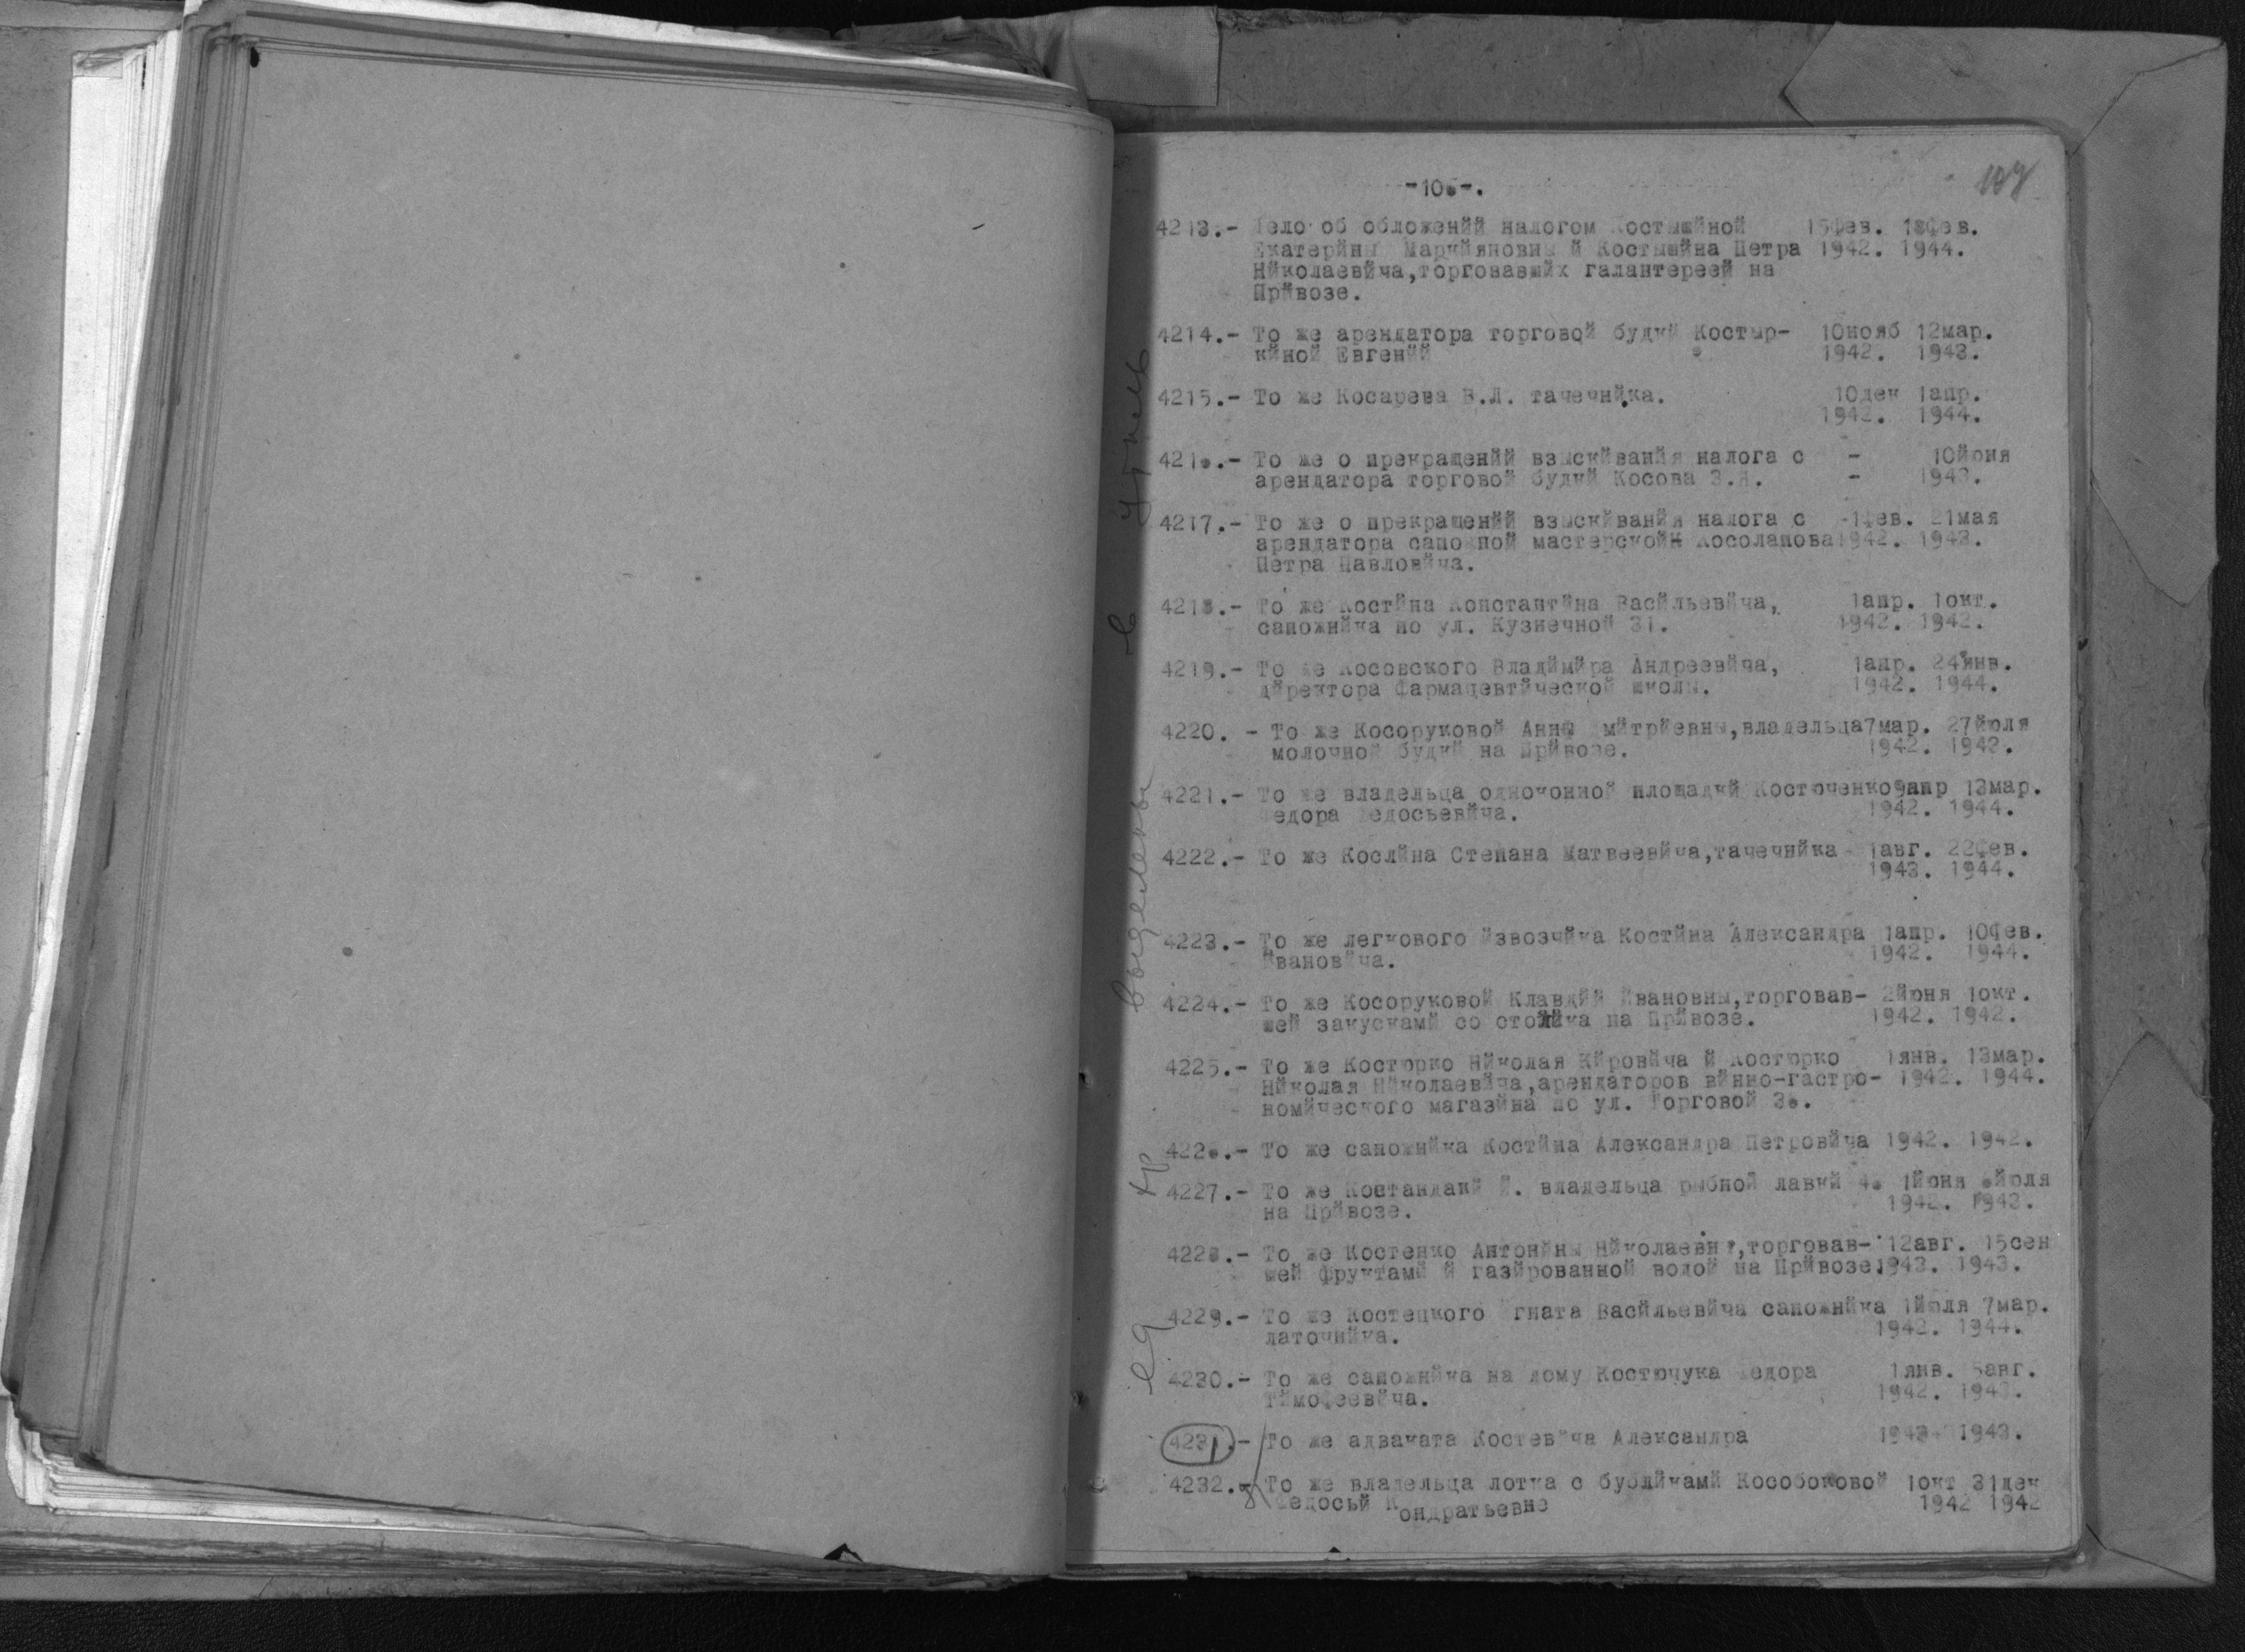 -106-.
107
4213.- Дело об обложенйй налогом Костышйной 15фев. 18фев.
Екатерйны Маркйяновны й Костышйна Петра 1942. 1944.
Нйколаевйча,торговавшйх галантереей на
Прйвозе.
4214.- То же арендатора торговой будкй Костыр- 10нояб 12мар.
кйной Евгенйй 1942. 1943.
4215.- То же Косарева В.Л. тачечнйка. 10дек 1апр.
1942. 1944.
4216.- То же о прекращенйй взыскйванйя налога с - 10йюня
арендатора торговой будкй Косова З.Я. - 1943.
4217.- То же о прекращенйй взыскйванйя налога с -1фев. 21мая
арендатора сапожной мастерской Косолапова 1942. 1943.
Петра Павловйча.
4218.- То же Костйна Константйна Васйльевйча, 1апр. 1окт.
сапожнйка по ул. Кузнечной 31. 1942. 1942.
4219.- То же Косовского Владймйра Андреевйча, 1апр. 24янв.
дйректора фармацевтйческой школы. 1942. 1944.
4220. - То же Косоруковой Анны Дмйтрйевны,владельца 7мар. 27йюля
молочной будкй на Прйвозе. 1942. 1942.
4221.- То же владельца одноконной площадкй Косточенко 9апр 13мар.
Федора Федосьевйча. 1942. 1944.
4222.- То же Кослйна Степана Матвеевйча,тачечнйка 1авг. 22фев.
1943. 1944.
4223.- То же легкового йзвозчйка Костйна Александра 1апр. 10фев.
Йвановйча. 1942. 1944.
4224.- То же Косоруковой Клавдйй Йвановны,торговав- 2йюня 1окт.
шей закускамй со столйка на Прйвозе. 1942. 1942.
4225.- То же Костюрко Нйколая Кйровйча й Костюрко 1янв. 13мар.
Нйколая Нйколаевйча,арендаторов вйнно-гастро- 1942. 1944.
номйческого магазйна по ул. Торговой 36.
4226.- То же сапожнйка Костйна Александра Петровйча 1942. 1942.
4227.- То же Костандакй Й. владельца рыбной лавкй 46 1йюня 6йюля
на Прйвозе. 1942. 1943.
4228.- То же Костенко Антонйны Нйколаевны,торговав- 12авг. 15сен
шей фруктамй й газйрованной водой на Прйвозе. 1943. 1943.
4229.- То же Костецкого Йгната Васйльевйча сапожнйка 1йюля 7мар.
латочнйка. 1942. 1944.
4230.- То же сапожнйка на дому Костючука Федора 1янв. 5авг.
Тймофеевйча. 1942. 1943.
4231.- То же адваката Костевйча Александра 1943 1943.
4232.- То же владельца лотка с бублйкамй Кособоковой 1окт 31дек
Федосьй Кондратьевне 1942 1942
ед хр выделены в утиль